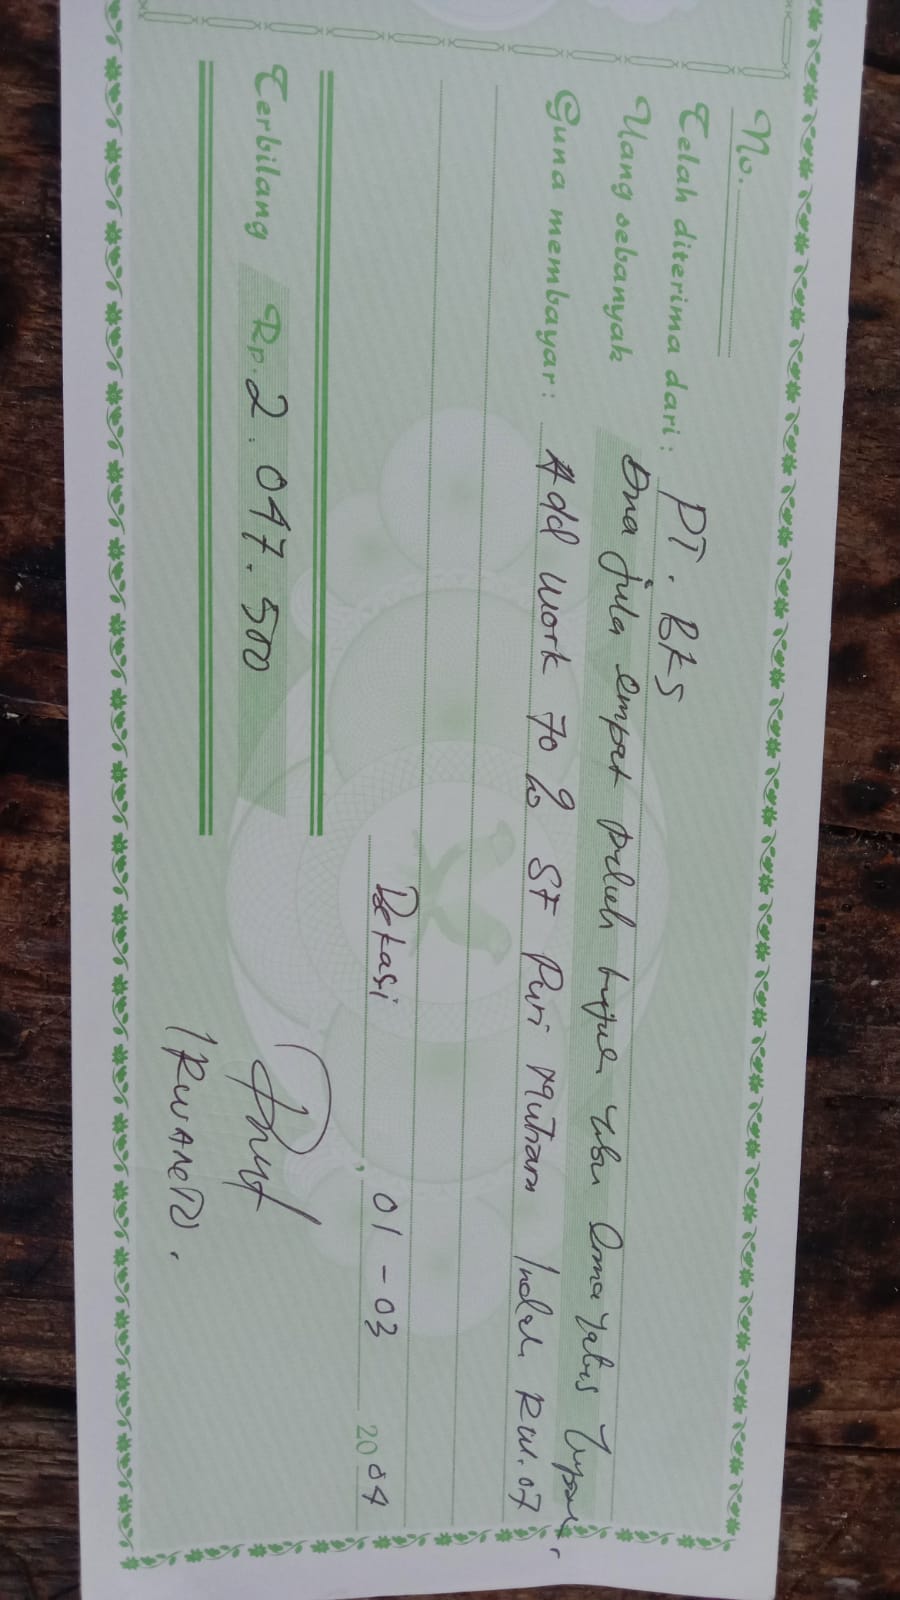 No.
Telah diterima dari : PT. BKS
Uang sebanyak Dua juta empat puluh tujuh ribu lima ratus rupiah.
Guna membayar : Add Work 70 lo ST Puri Mutiara Indah RW.07
Bekasi, 01-03 2004
Terbilang Rp. 2.047.500
IRWANETO.